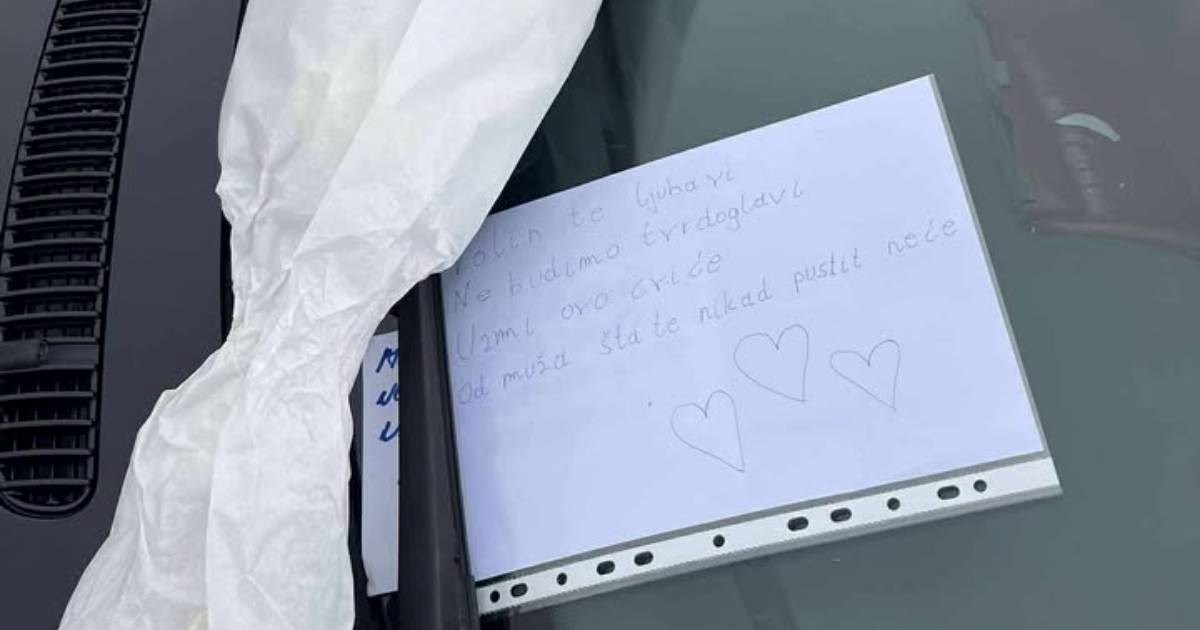 te ljubavi
Ne budimo tvrdoglavi
Uzmi ovo cviće
od muža šta te nikad pustit neće